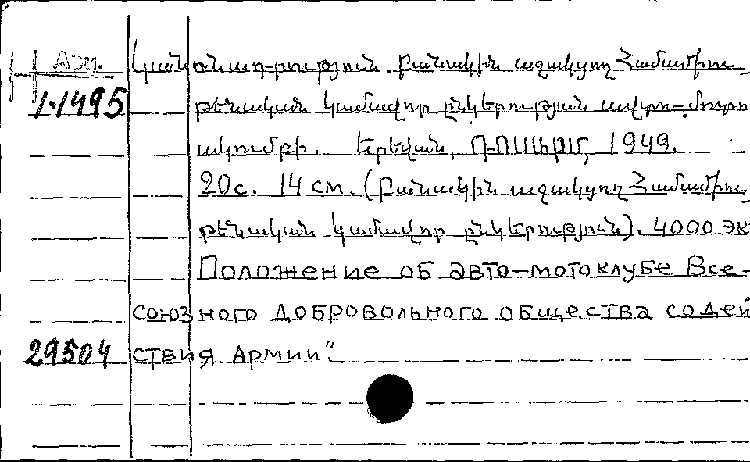 Կանոնադրություն Բանակին աջակցող Համամիու-
1-1495 թենական կամավոր ընկերության ավտո-մոտո
ակումբի. Երեվան, ԴՈՍԱՐՄ, 1949.
20с. 14 см. (Բանակին աջակցող Համամիու
թենական կամավոր ընկերություն). 4000 эк
Положение об авто-мотоклубе Все-
союзного добровольного общества содей
29504 ствия Армии".